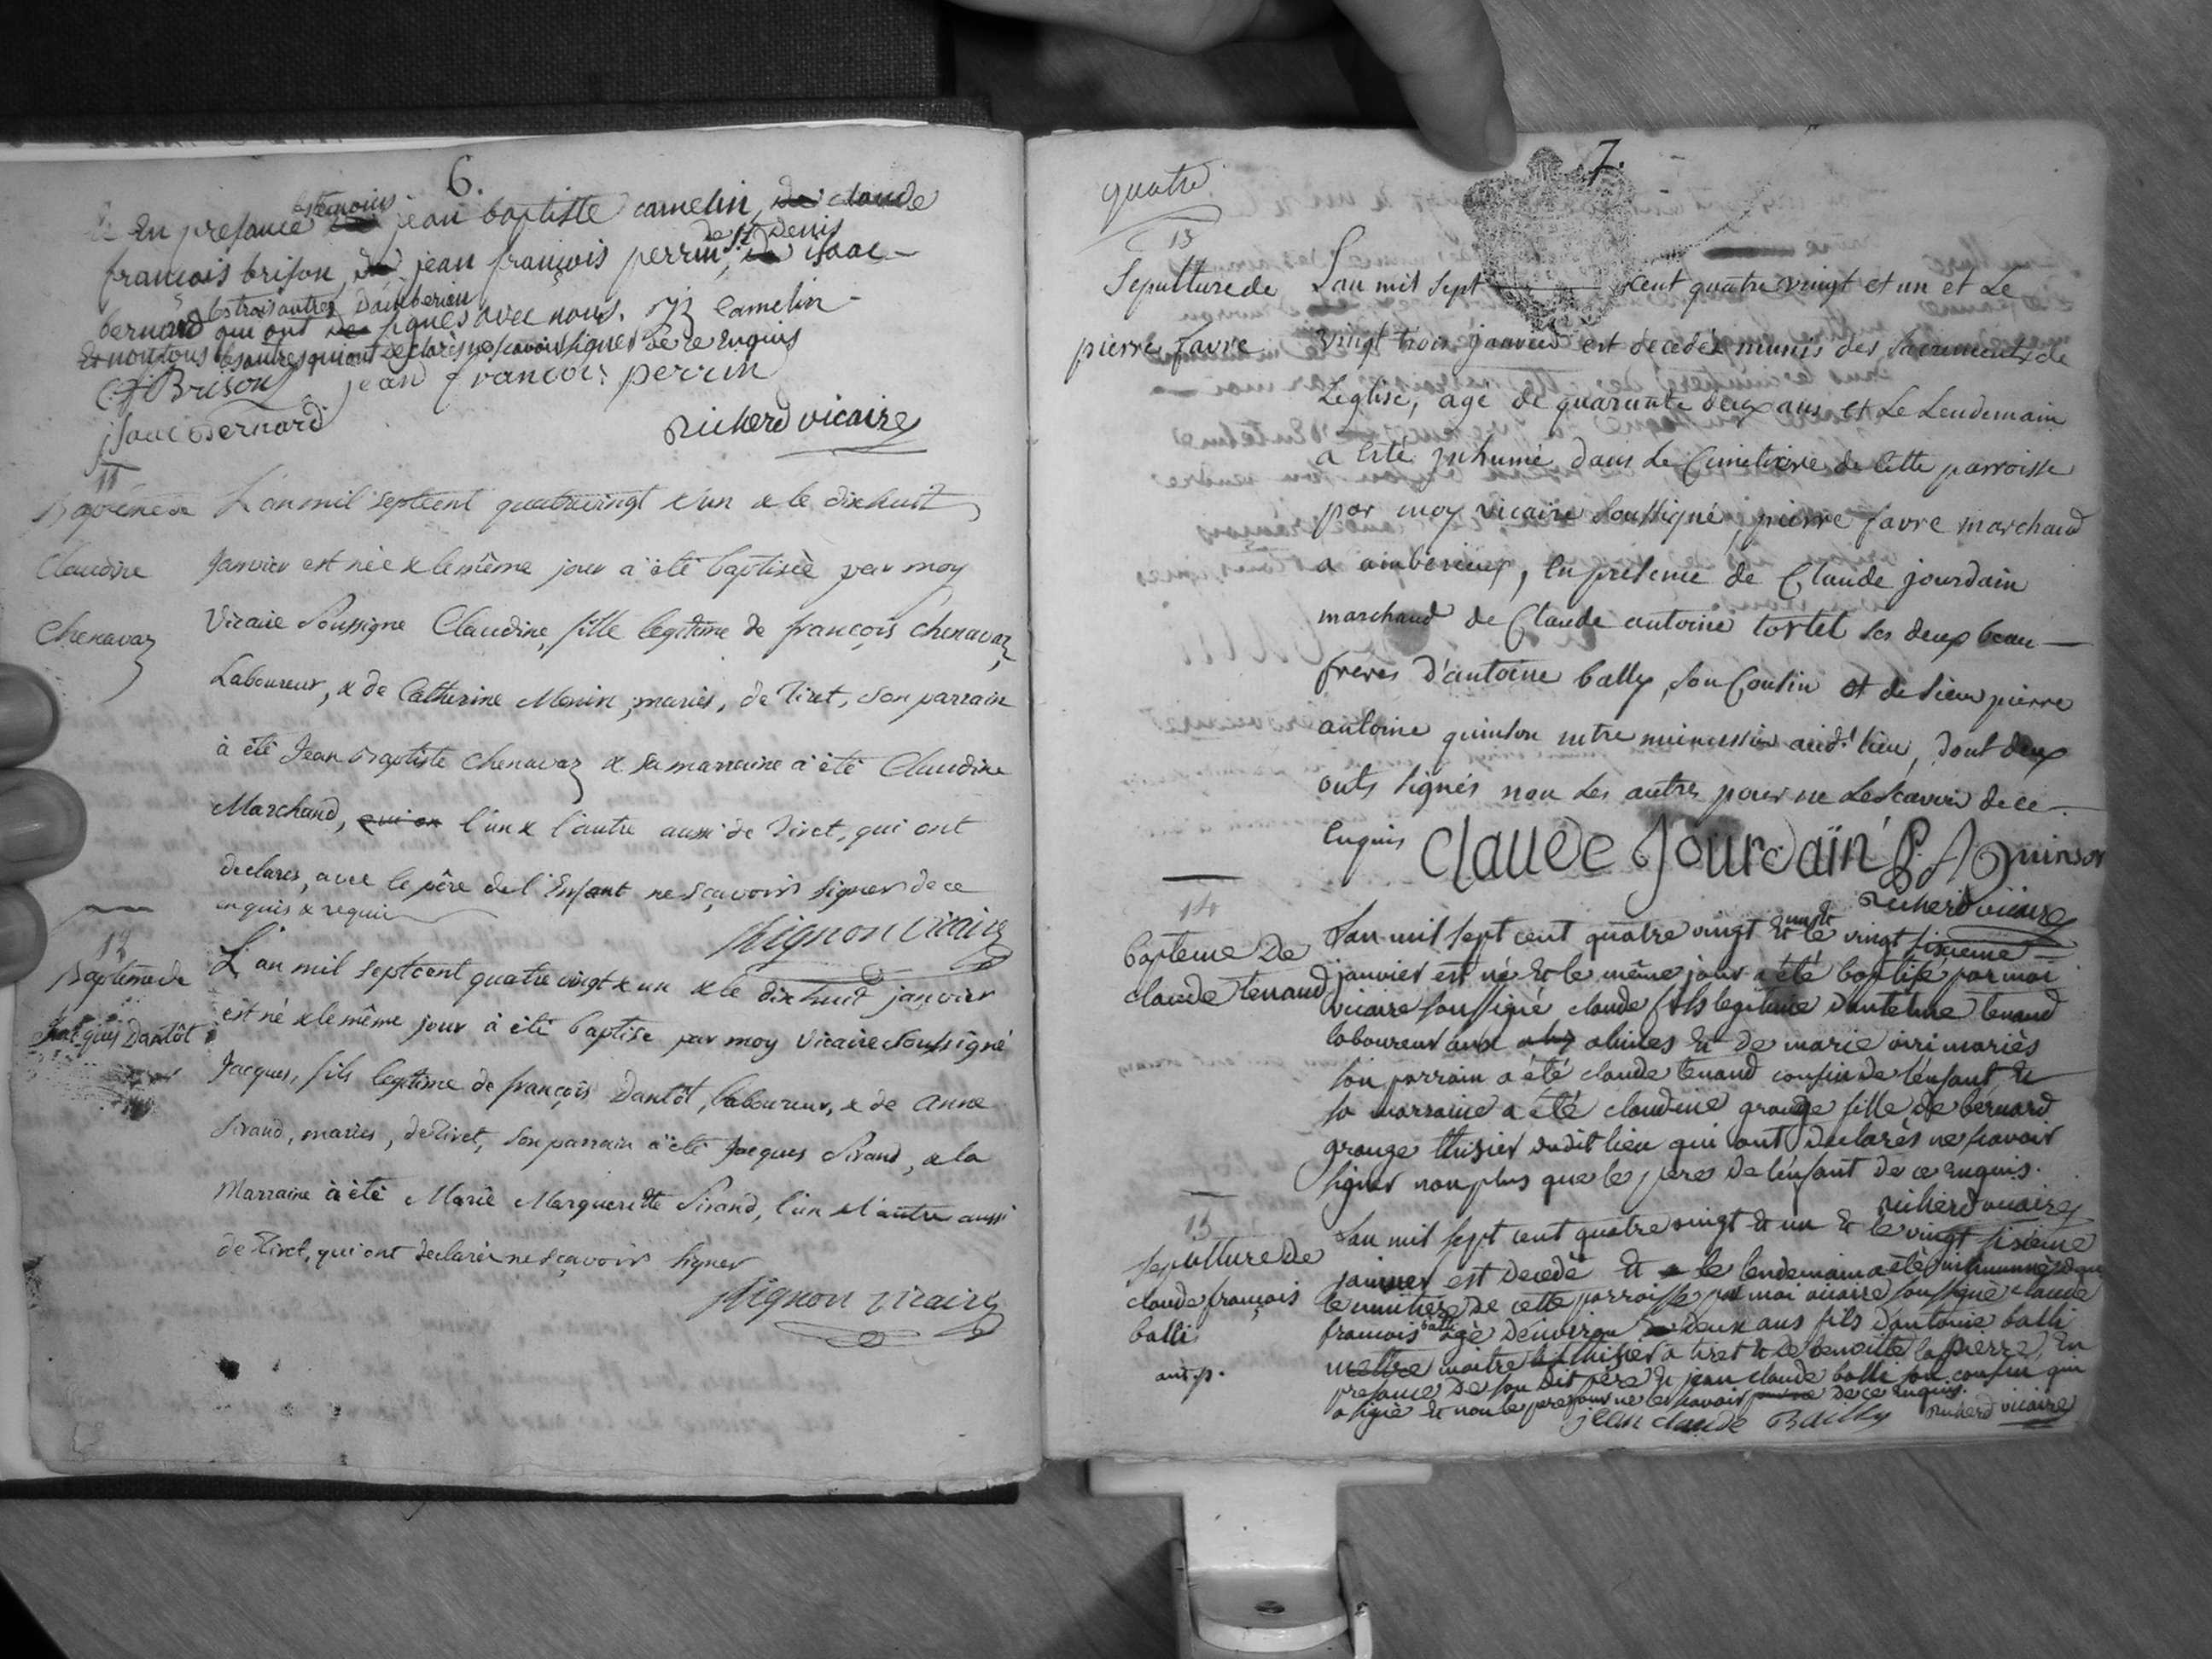 6.
en presance les temoins jean baptiste camelin, de claude
françois brison, de jean françois perrin de St Denis, de isaac
bernard les trois autres d'amberieu qui ont signés avec nous. camelin
et non tous les autres qui ont declarés ne scavoir signer de ce enquis
C f Brison jean françois perrin
isaac Bernard
Richerd vicaire
11
Baptême de
Claudine
Chenavaz
L'an mil septcent quatrevingt & un & le dixhuit
Janvier est née & le même jour a été baptisée par moy
Vicaire Soussigné Claudine, fille legitime de françois Chenavaz,
Laboureur, & de Catherine Monin, mariés, de Tiret, son parrain
à été Jean Baptiste Chenavaz & sa marraine a été Claudine
Marchand, qui on l'un & l'autre aussi de Tiret, qui ont
declarés, avec le père de l'Enfant ne sçavoir signer de ce
enquis & requis
Mignon Vicaire
12
Baptême de
Jacques Dantôt
L'an mil septcent quatre vingt & un & le dixhuit janvier
est né & le même jour à été baptisé par moy Vicaire Soussigné
Jacques, fils legitime de françois Dantôt, laboureur, & de Anne
Sirand, mariés, de Tiret, son parrain à été Jacques Sirand, & la
Marraine à été Marie Marguerite Sirand, l'un & l'autre aussi
de Tiret, qui ont declarés ne sçavoir signer
Mignon Vicaire
7.
quatre
13
Sepulture de
pierre favre
L'an mil sept cent quatre vingt et un et Le
vingt trois janvier est décédéz munis des Sacrements de
L'eglise, agé de quarante deux ans et Le Lendemain
a Esté inhumé dans Le Cimetiere de Cette parroisse
par moy vicaire Soussigné, pierre favre marchand
a ambérieux, En presence de Claude jourdain
marchand de Claude antoine tortet ses deux beau
freres d'antoine bally, son Cousin et de sieur pierre
antoine quinson audt lieu, dont deux
onts signés non Les autres pour ne Le scavoir de ce
Enquis Claude Jourdaïn P. A Quinson
Richerd vicaire
14
bapteme de
claude tenand
L'an mil sept cent quatre vingt et un et le vingt sixieme
janvier est né et le même jour a été baptisé par moi
vicaire soussigné claude fils legitime d'antelme tenand
laboureur aux alimes et de marie mariés
son parrain a été claude tenand cousin de l'enfant et
sa marraine a été claudine grange fille de bernard
grange thisier dudit lieu qui ont declarés ne scavoir
signer non plus que le pere de l'enfant de ce enquis.
Richerd vicaire
15
sepulture de
claude françois
balli
L'an mil sept cent quatre vingt et un et le vingt sixieme
janvier est decedé et a le lendemain a été inhumé dans
le cimitiere de cette parroisse par moi vicaire soussigné claude
francois balli agé d'environ deux ans fils d'antoine balli
maitre thisier a tiret et de benoitte lapierre, en
presance de son dit père et jean claude balli son cousin qui
a signé et non le pere pour ne le scavoir de ce enquis.
jean claude Bailly Richerd vicaire